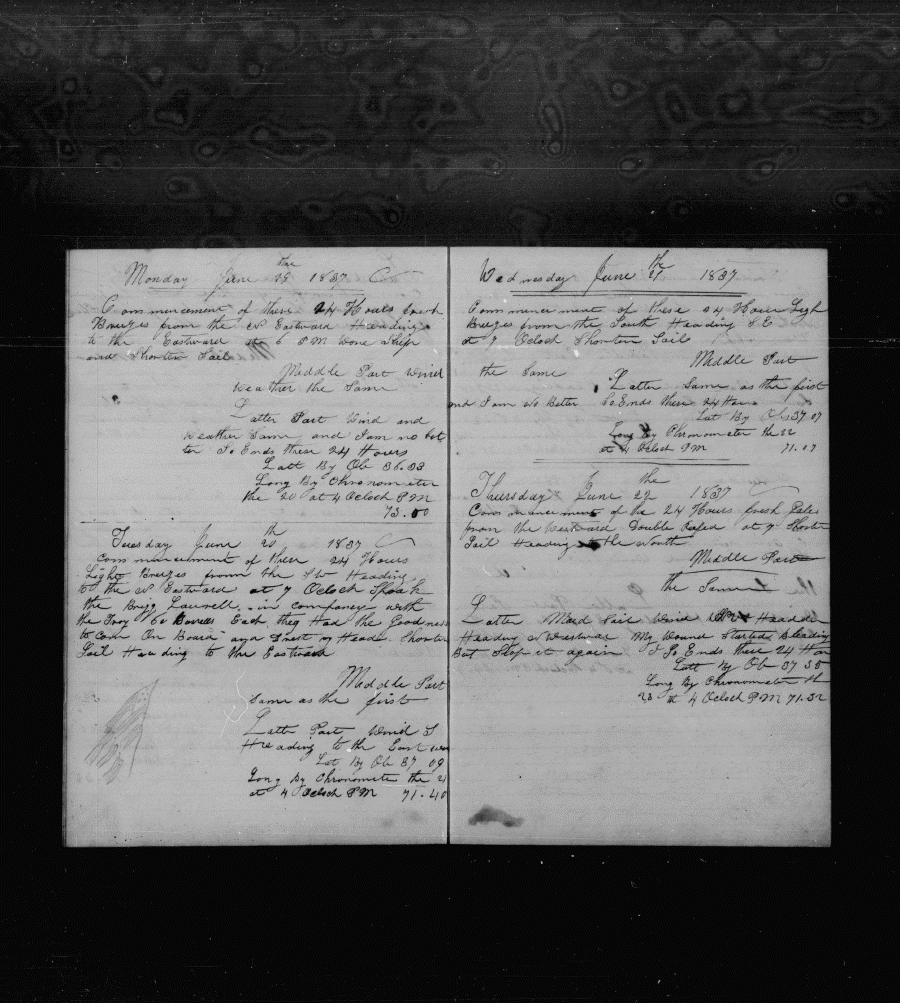 Monday June 19 the 1837
Commencement of these 24 Hours fresh
Breezes from the N Eastward Heading
to the Eastward at 6 PM Done Ship
and Shorten Sail
Middle Part Wind
weather the Same
Latter Part Wind and
weather Same and I am no bet
ter So Ends these 24 Hours
Latt By Ob 36.33
Long By Chronometer
the 20 at 4 Ocloch PM
73.00
Tuesday June 20 th 1837
Commencement of these 24 Hours
Light Breezes from the SW Heading
to the N Eastward at 7 Ocloch Spoak
the Brigg Laurell in company with
the 60 Barrells Each they Had the Goodness
to Com On Board and my Head Shorten
Sail Heading to the Eastward
Middle Part
Same as the first
Latter Part Wind S
Heading to the East
Lat By Ob 37 09
Long By Chronometer the 21
at 4 Ocloch PM 71.40
Wednesday June 21 the 1837
Commencement of these 24 Hours Ligh
Breezes from the South Heading S E
at 7 Ocloch Shorten Sail
Middle Part
the Same
Latter Same as the first
and I am No Better So Ends these 24 Hou
Lat By Ob 37 07
Long By Chronometer the 22
at 4 Ocloch PM 71.07
Thursday June 22 the 1837
Commencment of the 24 Hours fresh Gales
from the Westward Double Refed at 7 Shorten
Sail Heading to the North
Middle Part
the Same
Latter Maid Fair Wind Headden
Heading N Westward My Wound Started Bleading
But Stop it again So Ends these 24 Hou
Latt By Ob 37 35
Long By Chronometer th
23 at 4 Ocloch PM 71.32